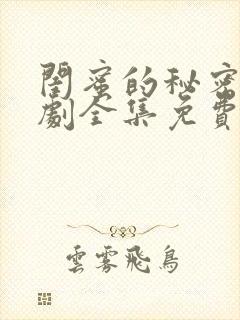 闺蜜的秘密
劇全集免費
雲霧飛鳥